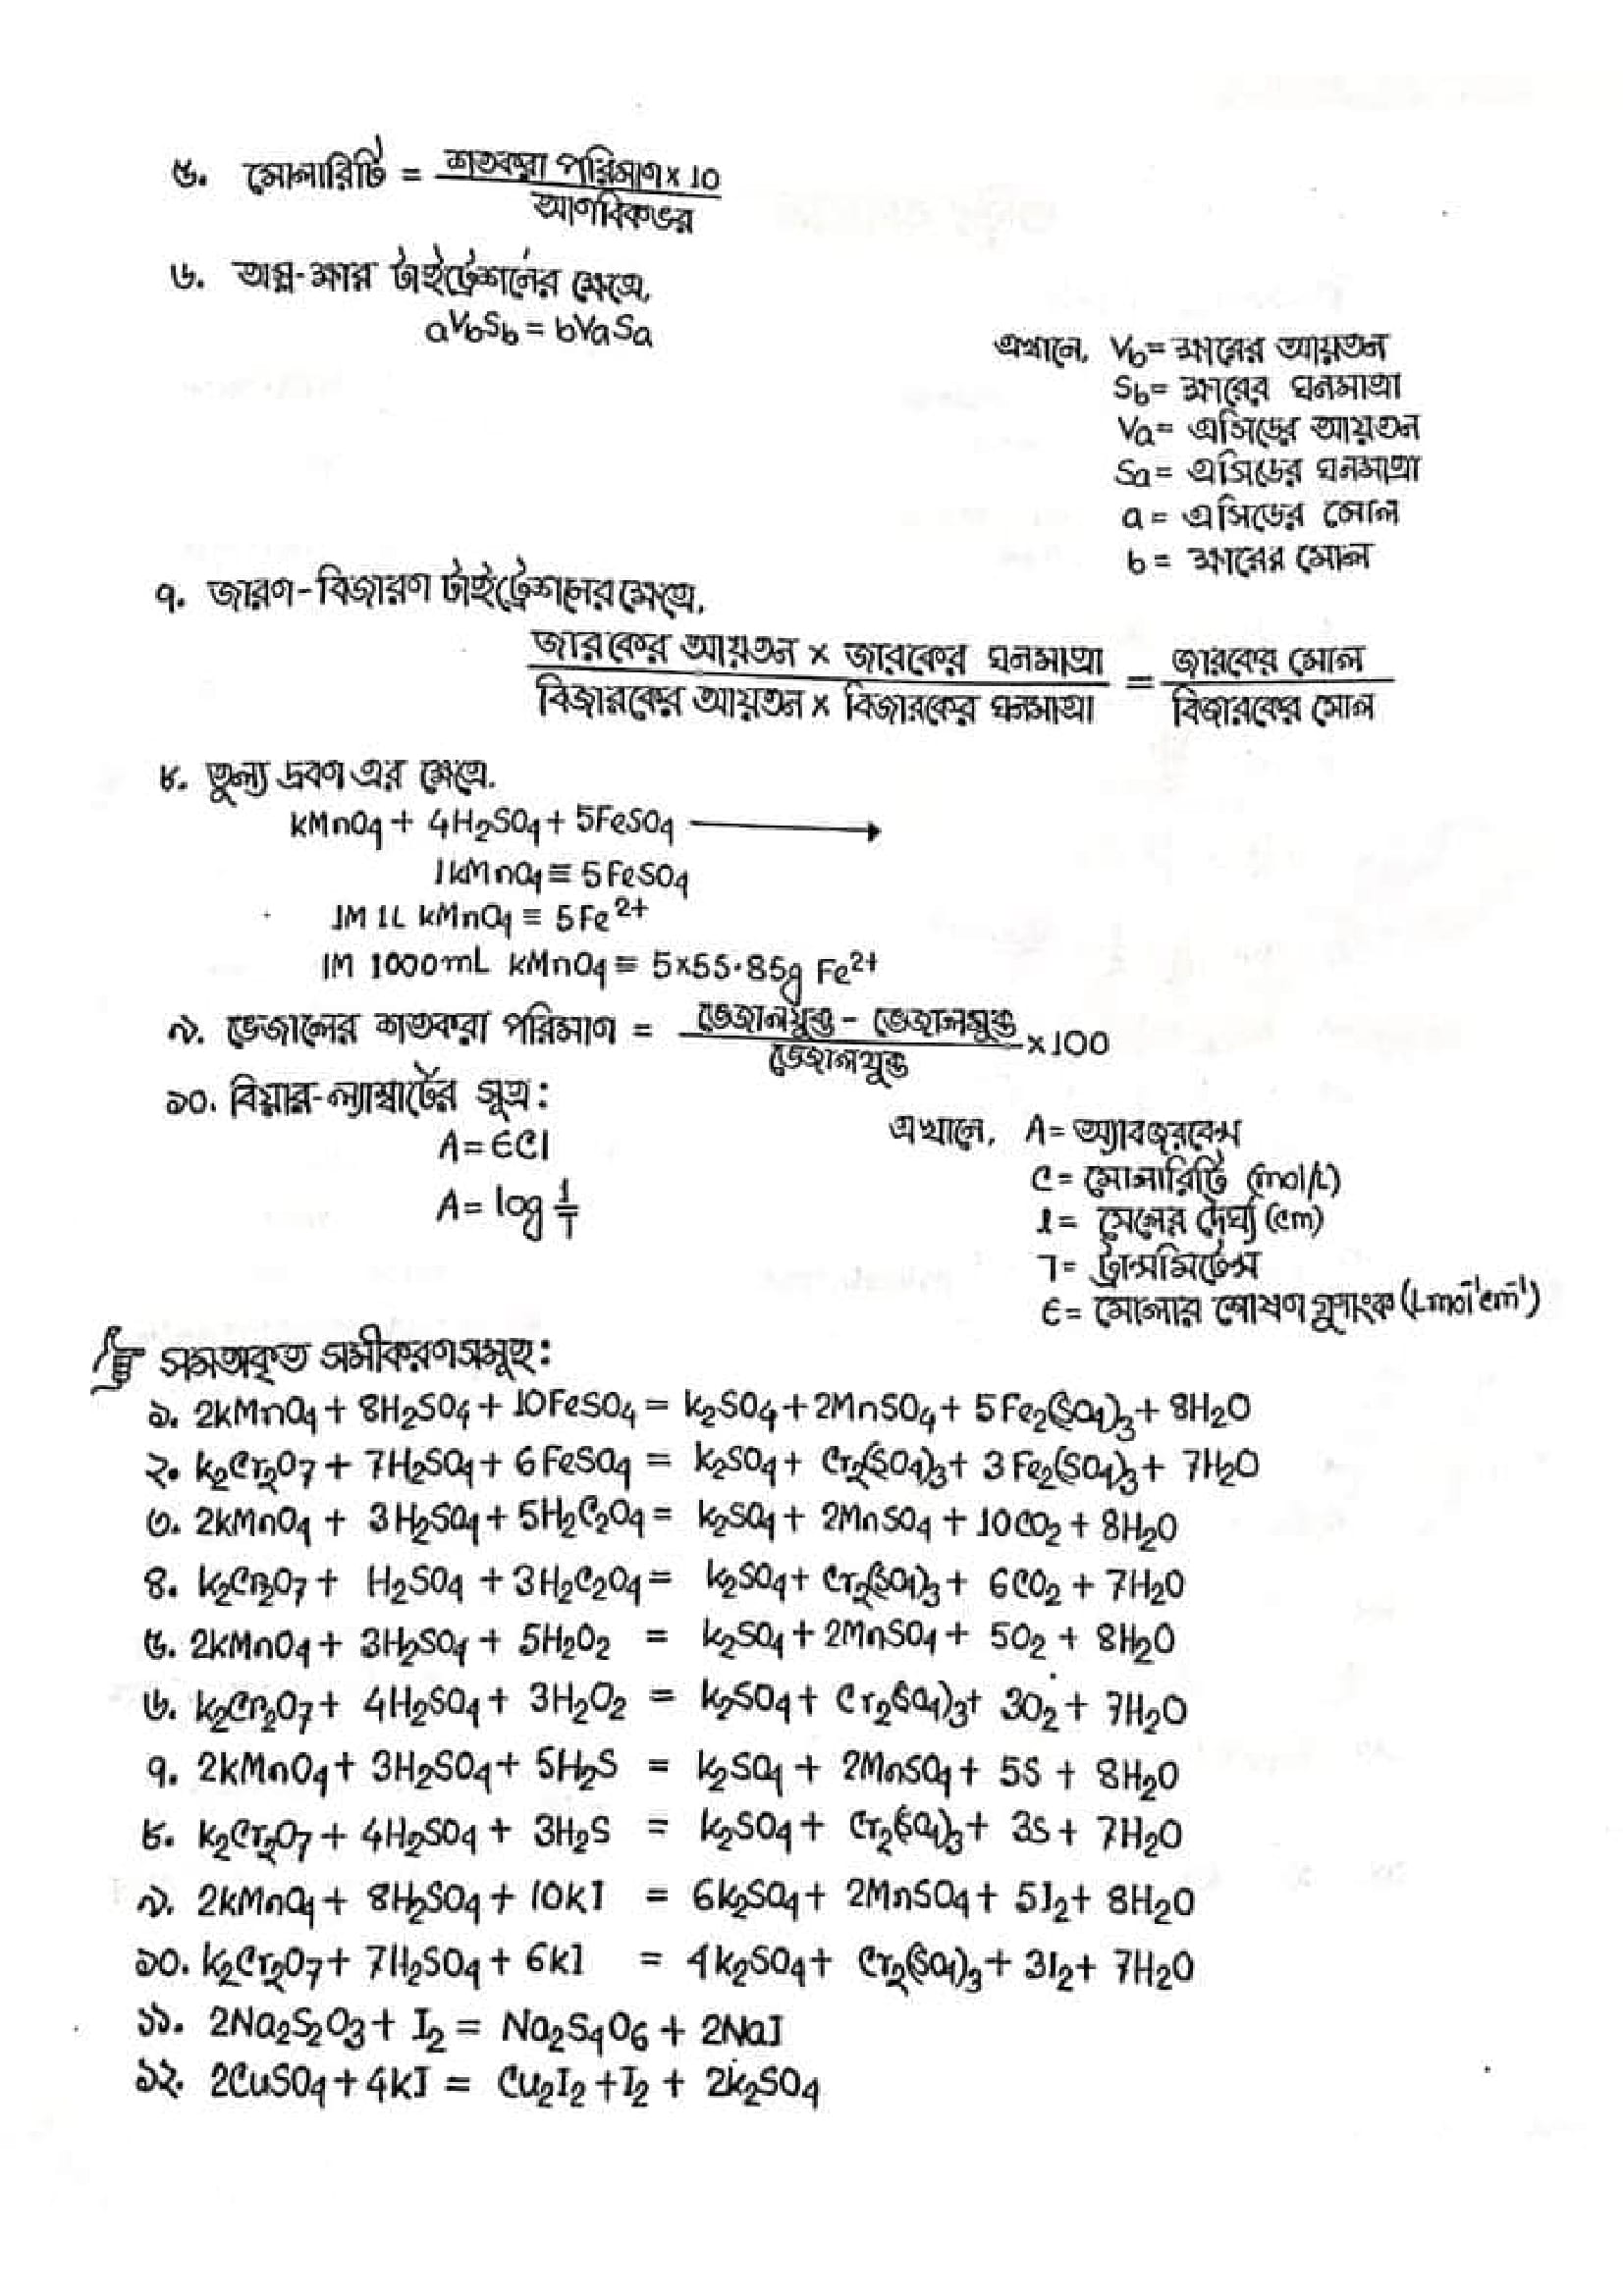 ৫. মোলারিটি = শতকরা পরিমাণ × 10 / আণবিকভর
৬. অম্ল-ক্ষার টাইট্রেশনের ক্ষেত্রে,
aVbSb = bVaSa
এখানে, Vb = ক্ষারের আয়তন
Sb = ক্ষারের ঘনমাত্রা
Va = এসিডের আয়তন
Sa = এসিডের ঘনমাত্রা
a = এসিডের মোল
b = ক্ষারের মোল
৭. জারণ-বিজারণ টাইট্রেশনের ক্ষেত্রে,
জারকের আয়তন × জারকের ঘনমাত্রা / বিজারকের আয়তন × বিজারকের ঘনমাত্রা = জারকের মোল / বিজারকের মোল
৮. তুল্য দ্রবণ এর ক্ষেত্রে.
KMnO4 + 4H2SO4 + 5FeSO4 ⟶
1KMnO4 ≡ 5FeSO4
1M 1L KMnO4 ≡ 5Fe²⁺
1M 1000mL KMnO4 ≡ 5×55.85g Fe²⁺
৯. ভেজালের শতকরা পরিমাণ = ভেজালযুক্ত - ভেজালমুক্ত / ভেজালযুক্ত ×100
১০. বিয়ার-ল্যাম্বার্টের সূত্র:
A = ∈Cl
A = log 1/T
এখানে, A = অ্যাবজরবেন্স
C = মোলারিটি (mol/L)
l = সেলের দৈর্ঘ্য (cm)
T = ট্রান্সমিটেন্স
∈ = মোলার শোষণ গুণাংক (Lmol⁻¹cm⁻¹)
সমতাকৃত সমীকরণসমূহ:
১. 2KMnO4 + 8H2SO4 + 10FeSO4 = K2SO4 + 2MnSO4 + 5Fe2(SO4)3 + 8H2O
২. K2Cr2O7 + 7H2SO4 + 6FeSO4 = K2SO4 + Cr2(SO4)3 + 3Fe2(SO4)3 + 7H2O
৩. 2KMnO4 + 3H2SO4 + 5H2C2O4 = K2SO4 + 2MnSO4 + 10CO2 + 8H2O
৪. K2Cr2O7 + H2SO4 + 3H2C2O4 = K2SO4 + Cr2(SO4)3 + 6CO2 + 7H2O
৫. 2KMnO4 + 3H2SO4 + 5H2O2 = K2SO4 + 2MnSO4 + 5O2 + 8H2O
৬. K2Cr2O7 + 4H2SO4 + 3H2O2 = K2SO4 + Cr2(SO4)3 + 3O2 + 7H2O
৭. 2KMnO4 + 3H2SO4 + 5H2S = K2SO4 + 2MnSO4 + 5S + 8H2O
৮. K2Cr2O7 + 4H2SO4 + 3H2S = K2SO4 + Cr2(SO4)3 + 3S + 7H2O
৯. 2KMnO4 + 8H2SO4 + 10KI = 6K2SO4 + 2MnSO4 + 5I2 + 8H2O
১০. K2Cr2O7 + 7H2SO4 + 6KI = 4K2SO4 + Cr2(SO4)3 + 3I2 + 7H2O
১১. 2Na2S2O3 + I2 = Na2S4O6 + 2NaI
১২. 2CuSO4 + 4KI = Cu2I2 + I2 + 2K2SO4